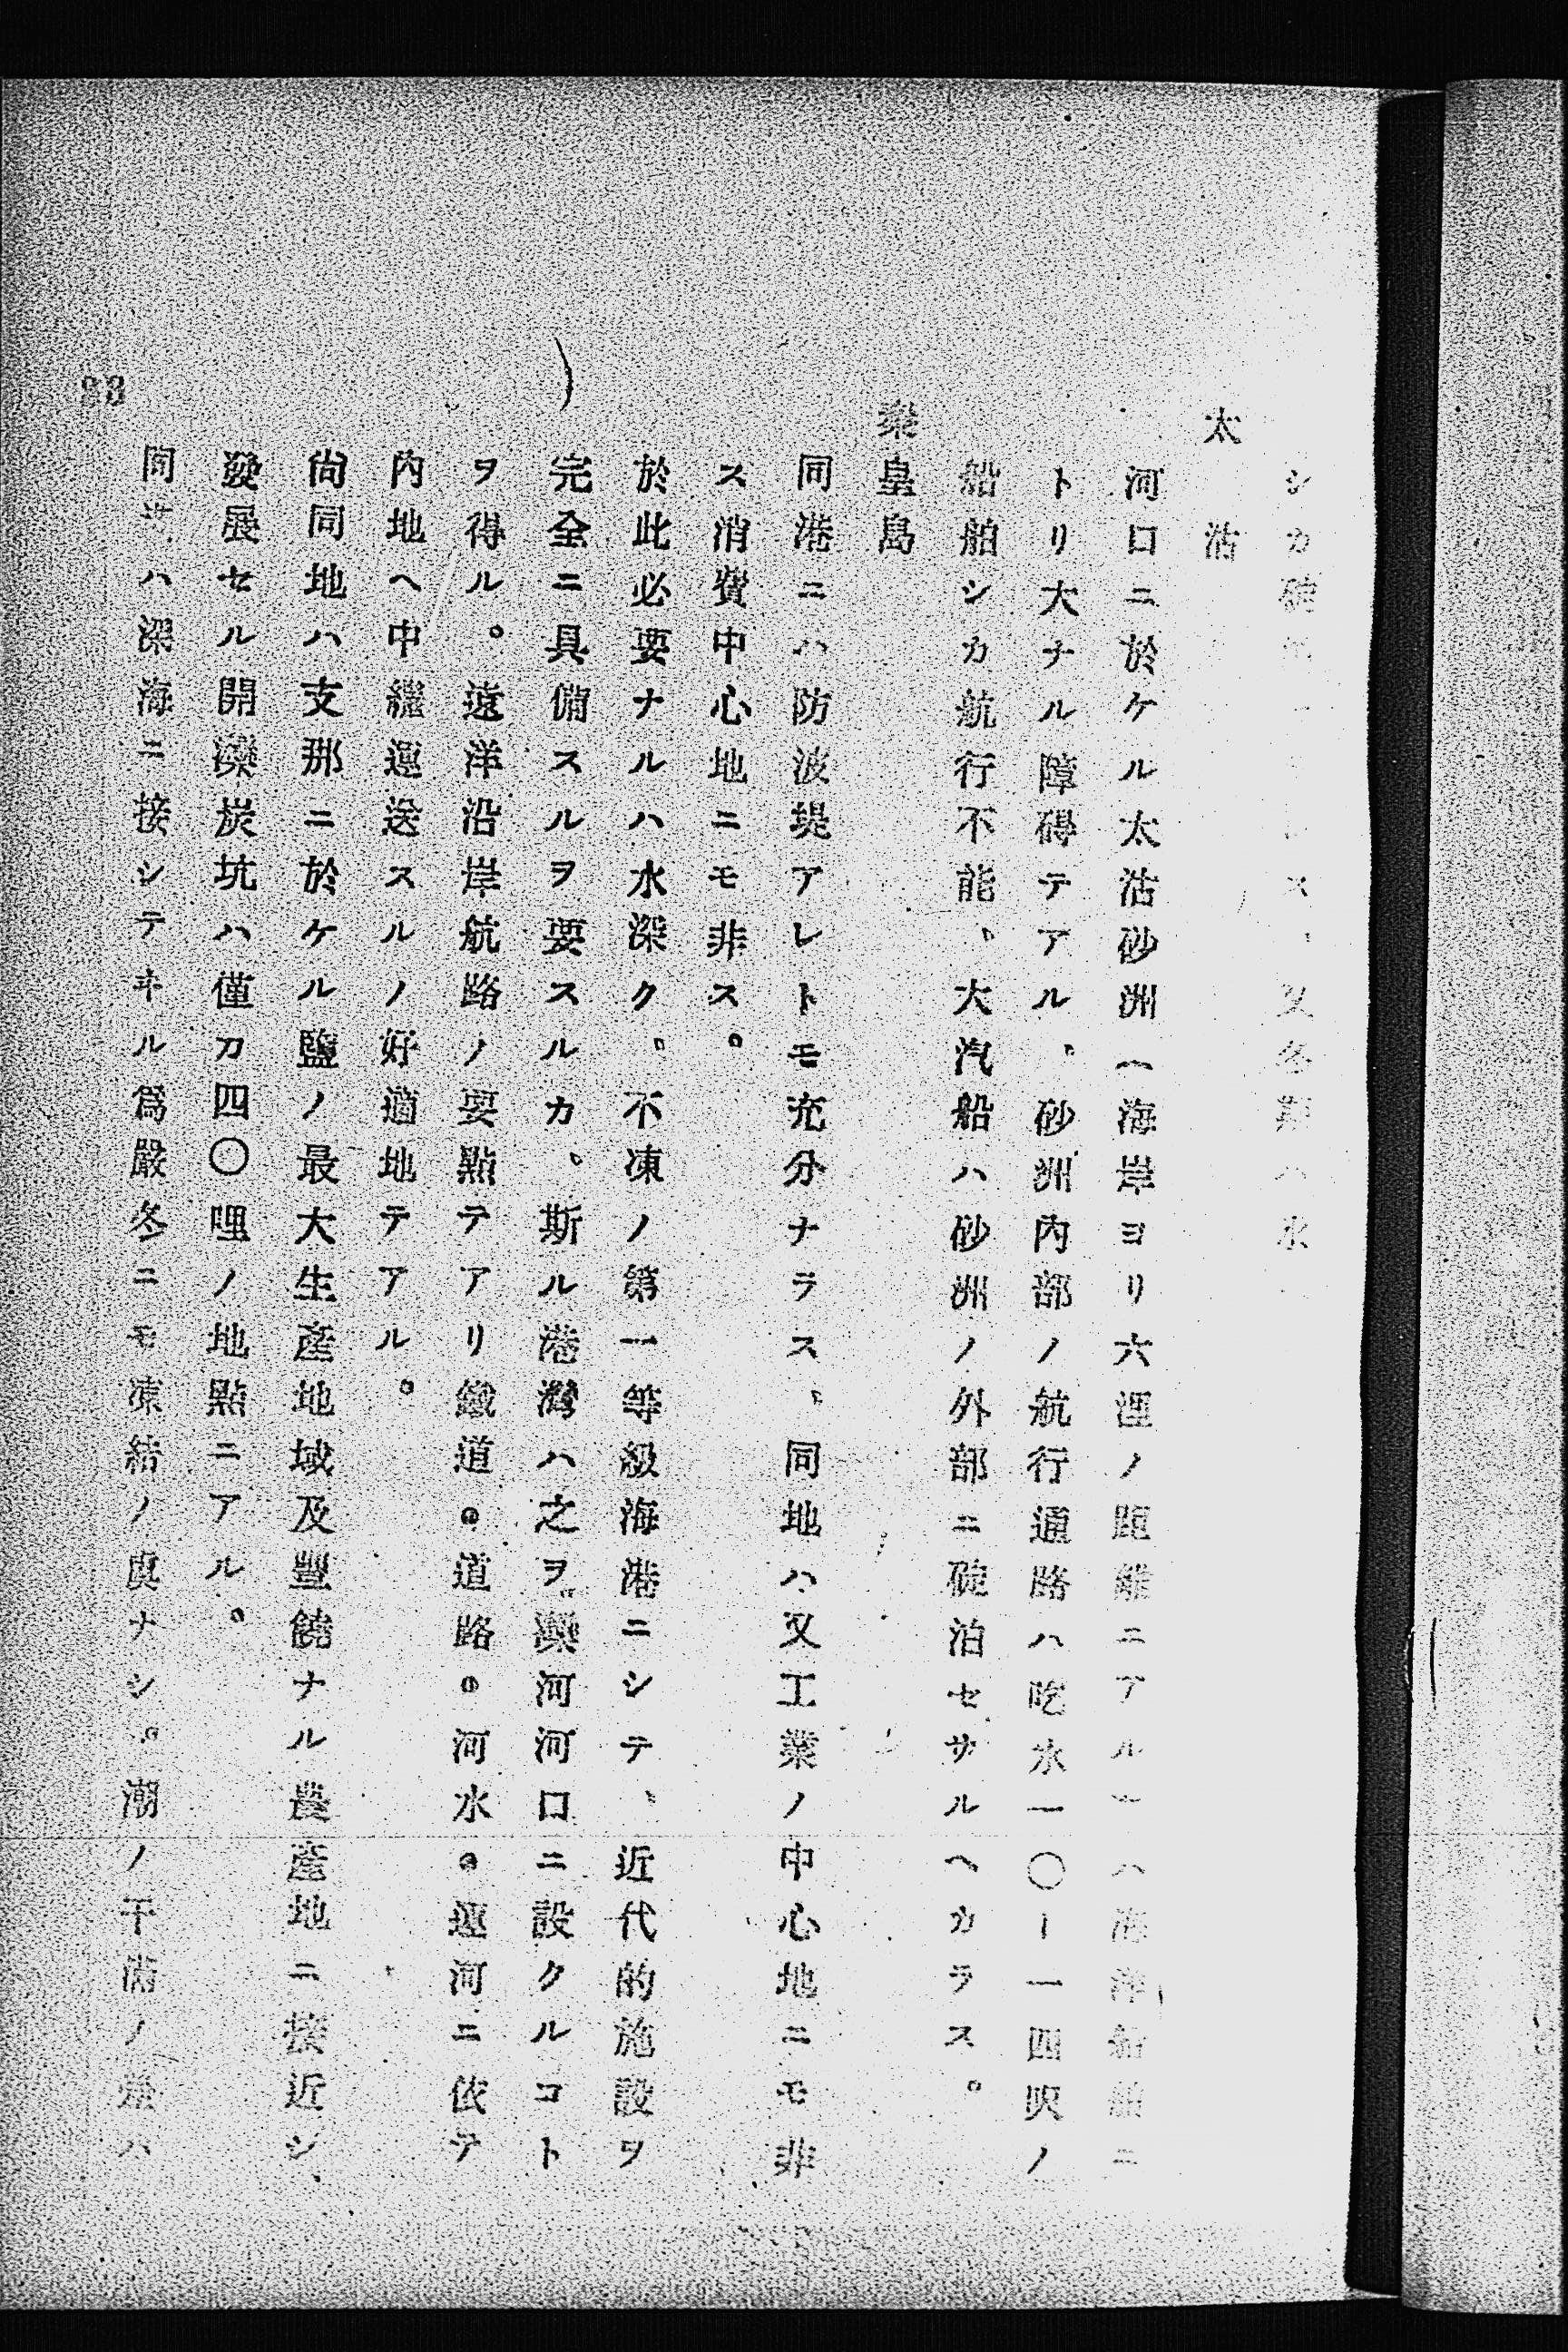 シカ碇
ス、又冬期ハ氷
太沽
河口ニ於ケル太沽砂洲(海岸ヨリ六浬ノ距離ニアル)ハ海洋船舶ニ
トリ大ナル障碍テアル、砂洲内部ノ航行通路ハ吃水一〇ー一四呎ノ
船舶シカ航行不能、大汽船ハ砂洲ノ外部ニ碇泊セサルヘカラス。
秦皇島
同港ニハ防波堤アレトモ充分ナラス、同地ハ又工業ノ中心地ニモ非
ス消費中心地ニモ非ス。
於此必要ナルハ水深ク、不凍ノ第一等級海港ニシテ、近代的施設ヲ
完全ニ具備スルヲ要スルカ、斯ル港灣ハ之ヲ灤河河口ニ設クルコト
ヲ得ル。遠洋沿岸航路ノ要點テアリ鐵道。道路。河水。運河ニ依テ
內地ヘ中繼運送スルノ好適地テアル。
尙同地ハ支那ニ於ケル鹽ノ最大生產地域及豐饒ナル農產地ニ接近シ、
發展セル開灤炭坑ハ僅カ四〇哩ノ地點ニアル。
同港ハ深海ニ接シテヰル爲嚴冬ニモ凍結ノ虞ナシ。潮ノ干滿ノ差ハ